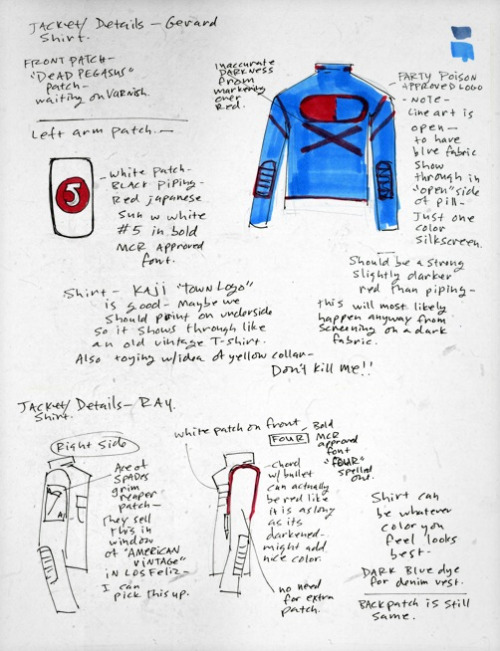 JACKET/ DETAILS - GERARD
SHIRT.
FRONT PATCH -
"DEAD PEGASUS"
PATCH -
WAITING ON VARNISH.
LEFT ARM PATCH. -
5
- WHITE PATCH -
BLACK PIPING -
RED JAPANESE
SUN W WHITE
#5 IN BOLD
MCR APPROVED
FONT.
INACCURATE
DARKNESS
FROM
MARKERING
OVER
RED.
PARTY POISON
APPROVED LOGO
- NOTE -
LINE ART IS
OPEN -
TO HAVE
BLUE FABRIC
SHOW
THROUGH IN
"OPEN" SIDE
OF PILL -
JUST ONE
COLOR
SILKSCREEN.
SHOULD BE A STRONG
SLIGHTLY DARKER
RED THAN PIPING -
THIS WILL MOST LIKELY
HAPPEN ANYWAY FROM
SCREENING ON A DARK
FABRIC.
SHIRT - KAJI "TOWN LOGO"
IS GOOD - MAYBE WE
SHOULD PRINT ON UNDERSIDE
SO IT SHOWS THROUGH LIKE
AN OLD VINTAGE T-SHIRT.
ALSO TOYING W/IDEA OF YELLOW COLLAR -
DON'T KILL ME!!
JACKET/ DETAILS - RAY.
SHIRT.
RIGHT SIDE
ACE OF
SPADES
GRIM
REAPER
PATCH -
THEY SELL
THIS IN
WINDOW
OF "AMERICAN
VINTAGE"
IN LOS FELIZ -
I CAN
PICK THIS UP.
WHITE PATCH ON FRONT
FOUR
- BOLD
MCR
APPROVED
FONT
"FOUR"
SPELLED
OUT.
- CHORD
W/ BULLET
CAN ACTUALLY
BE RED LIKE
IT IS AS LONG
AS ITS
DARKENED -
MIGHT ADD
NICE COLOR.
NO NEED
FOR EXTRA
PATCH.
SHIRT CAN
BE WHATEVER
COLOR YOU
FEEL LOOKS
BEST -
DARK BLUE DYE
FOR DENIM VEST.
BACKPATCH IS STILL
SAME.